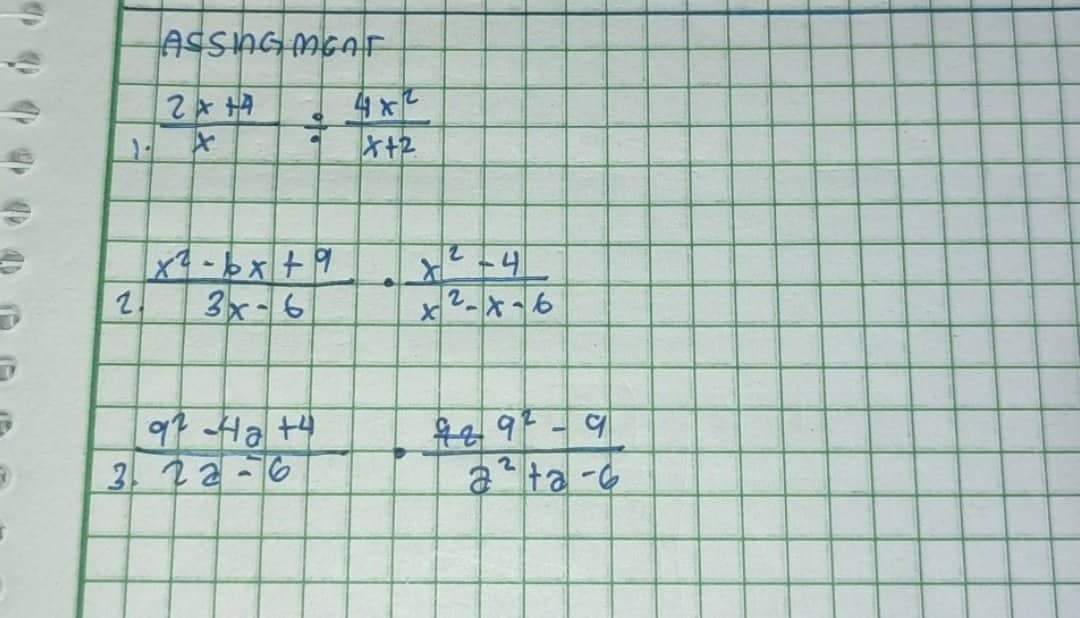 ASSINGMENT
1. (2x+4)/x ÷ (4x²)/(x+2)
2. (x²-6x+9)/(3x-6) · (x²-4)/(x²-x-6)
3. (a²-4a+4)/(2a-6) · (a²-9)/(a²+a-6)